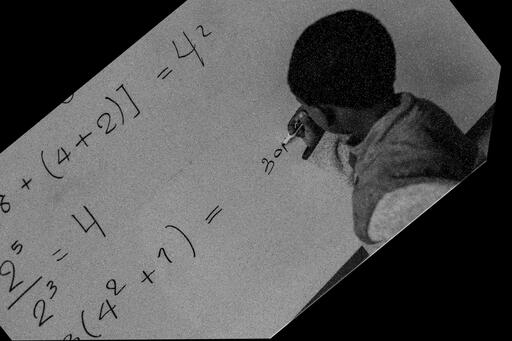 8 + (4+2)] = 4²
2⁵/2³ = 4
3(4² + 1) =
30